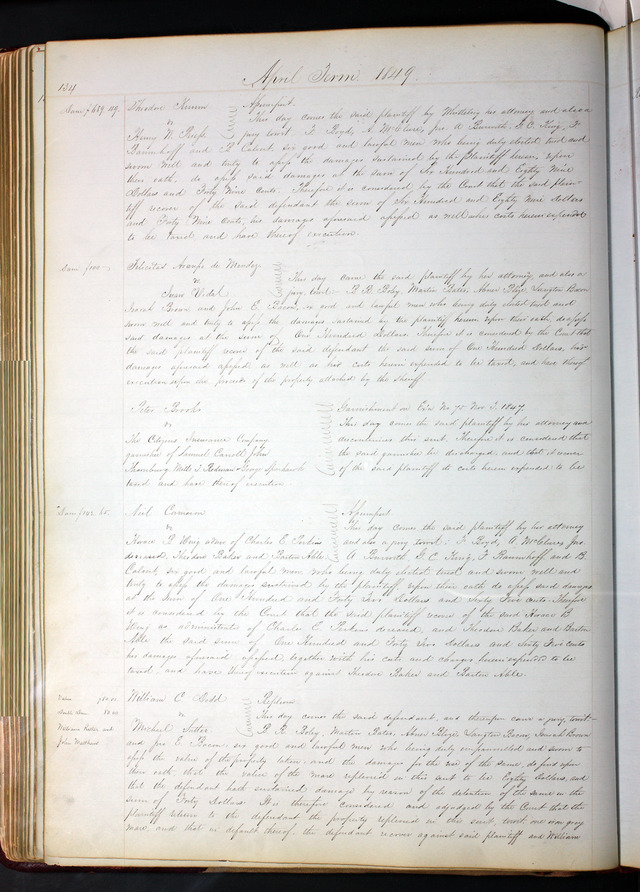 134
April Term 1849
Dam $689.49.
Theodore
vs
Henry W.
Assumpsit
This day comes the said plaintiff by his attorney and also a
jury towit F. Boyd, A. McClure, jno. A. G. C. King, F.
and B. six good and lawful men who being duly elected tried and
sworn well and truly to assess the damages sustained by the Plaintiff herein, upon
their oath do assess said damages at the sum of Six Hundred and Eighty Nine
Dollars and Forty Nine Cents. Therefore it is considered by the Court that the said plain-
tiff recover of the said defendant the sum of Six Hundred and Eighty Nine dollars
and Forty Nine Cents, his damages aforesaid assessed as well as his costs herein expended
to be taxed, and have thereof execution.
Dam $100
Felicitas
vs
Vidal
This day came the said plaintiff by her attorney, and also a
jury, towit Martin Bates, Abner Langton
Isaiah Brown and John E. Bacon, six good and lawful men who being duly elected tried and
sworn well and truly to assess the damages sustained by the plaintiff herein upon their oath, do assess
said damages at the sum of One Hundred Dollars. Therefore it is considered by the Court that
the said plaintiff recover of the said defendant the said sum of One Hundred Dollars, his
damages aforesaid assessed as well as his costs herein expended to be taxed, and have thereof
execution upon the proceeds of the property attached by the Sheriff.
Peter Brooks
vs
The Citizens Insurance Company
garnishee of Samuel Carroll, John
Garnishment on Exn No 75 Nov T. 1847.
This day comes the said plaintiff by his attorney and
discontinues this suit. Therefore it is considered that
the said garnishee be discharged, and that it recover
of the said plaintiff its costs herein expended to be
taxed and have thereof execution
Dam $142.65.
Noel Cameron
vs
Horace B. King admr of Charles E. Perkins
deceased, Theodore Baker and Barton Able
Assumpsit
This day comes the said plaintiff by his attorney
and also a jury towit: F. Boyd, A. McClure jno.
A. G. C. King, F. and B.
six good and lawful men who being duly elected tried and sworn well and
truly to assess the damages sustained by the plaintiff, upon their oath do assess said damages
at the sum of One Hundred and Forty Two Dollars and Sixty Five cents. Therefore
it is considered by the Court that the said plaintiff recover of the said Horace B
King as administrator of Charles E Perkins deceased, and Theodore Baker and Barton
Able the said sum of One Hundred and Forty Two dollars and Sixty Five cents
his damages aforesaid assessed, together with his costs and charges herein expended to be
taxed, and have thereof execution against Theodore Baker and Barton Able.
Value $80.00
40.00
William
John
William C.
vs
Michael Sutter
Replevin
This day comes the said defendant, and thereupon came a jury, towit
Martin Bates, Abner Langton Isaiah Brown
and jno E. Bacon, six good and lawful men who being duly empannelled and sworn to
assess the value of the property taken, and the damages for the use of the same, do find upon
their oath, that the value of the mare replevied in this suit to be Eighty dollars, and
that the defendant hath sustained damage by reason of the detention of the same in the
sum of Forty Dollars. It is therefore considered and adjudged by the Court that the
plaintiff return to the defendant the property replevied in this suit, towit one iron grey
mare and that in default thereof the defendant recover against said plaintiff and William